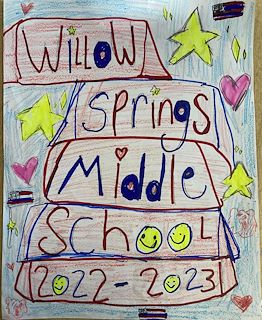 WillOW
Springs
Middle
SchooL
2022-2023